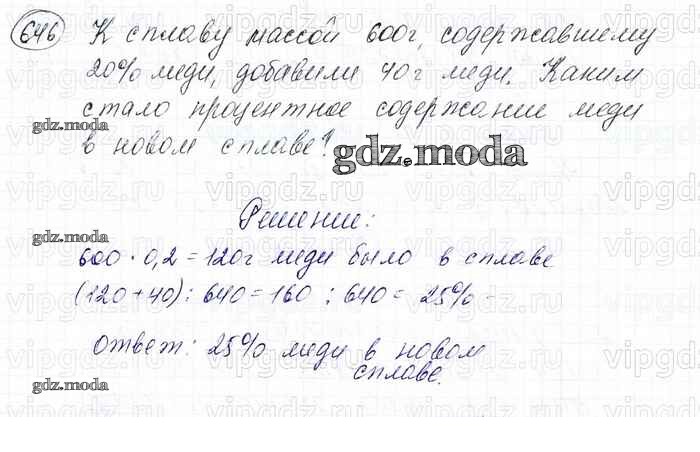 646 К сплаву массой 600г, содержавшему
20% меди, добавили 40г меди. Каким
стало процентное содержание меди
gdz.moda
в новом сплаве?
gdz.moda
Решение:
gdz.moda
600 · 0,2 = 120г меди было в сплаве
(120 + 40) : 640 = 160 : 640 = 25% -
ответ: 25% меди в новом
сплаве.
gdz.moda